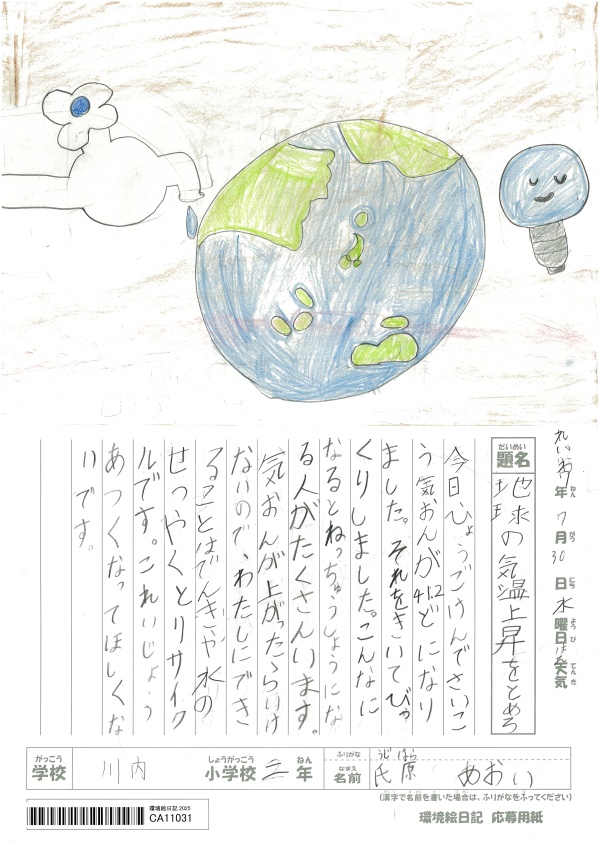 れいわ7年7月30日水曜日天気
だいめい
題名
地球の気温上昇をとめろ
今日ひょうごけんでさいこ
う気おんが41.2どになり
ました。それをきいてびっ
くりしました。こんなに
なるとねっちゅうしょうにな
る人がたくさんいます。
気おんが上がったらいけ
ないので、わたしにでき
ることはでんきや水の
せつやくとリサイク
ルです。これいじょう
あつくなってほしくな
いです。
がっこう
学校
川内
しょうがっこう
小学校
三
ねん
年
ふりがな
なまえ
名前
うじはら
氏原 あおい
(漢字で名前を書いた場合は、ふりがなをふってください)
環境絵日記 2025
CA11031
環境絵日記 応募用紙